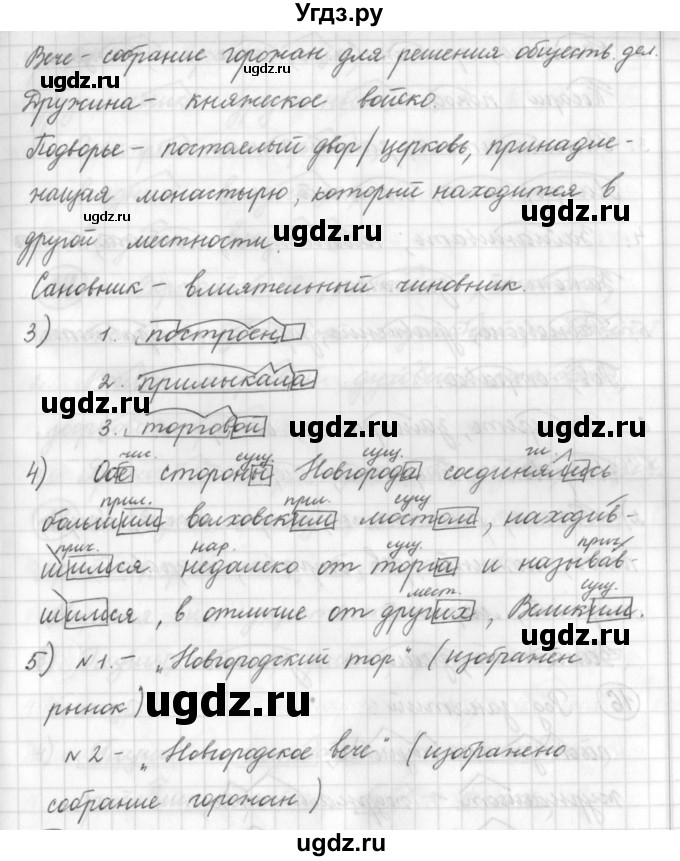 Угдз.ру
Вече - собрание горожан для решения обществ. дел.
Дружина - княжеское войско.
Подворье - постоялый двор / церковь, принадле-
жащая монастырю, который находится в
другой местности.
Сановник - влиятельный чиновник.
3) 1. построен
2. примыкала
3. торговой
чис. сущ. сущ. гл.
4) Обе стороны Новгорода соединялись
прил. прил. сущ.
большим волховским мостом, находив-
прич. нар. сущ. прич.
шимся недалеко от торга и называв-
мест. сущ.
шимся, в отличие от других, Великим.
5) №1. - „Новгородский торг" (изображен
рынок)
№2 - „Новгородское вече" (изображено
собрание горожан)
ugdz.ru
ugdz.ru
ugdz.ru
ugdz.ru
ugdz.ru
ugdz.ru
ugdz.ru
ugdz.ru
ugdz.ru
ugdz.ru
ugdz.ru
ugdz.ru
ugdz.ru
ugdz.ru